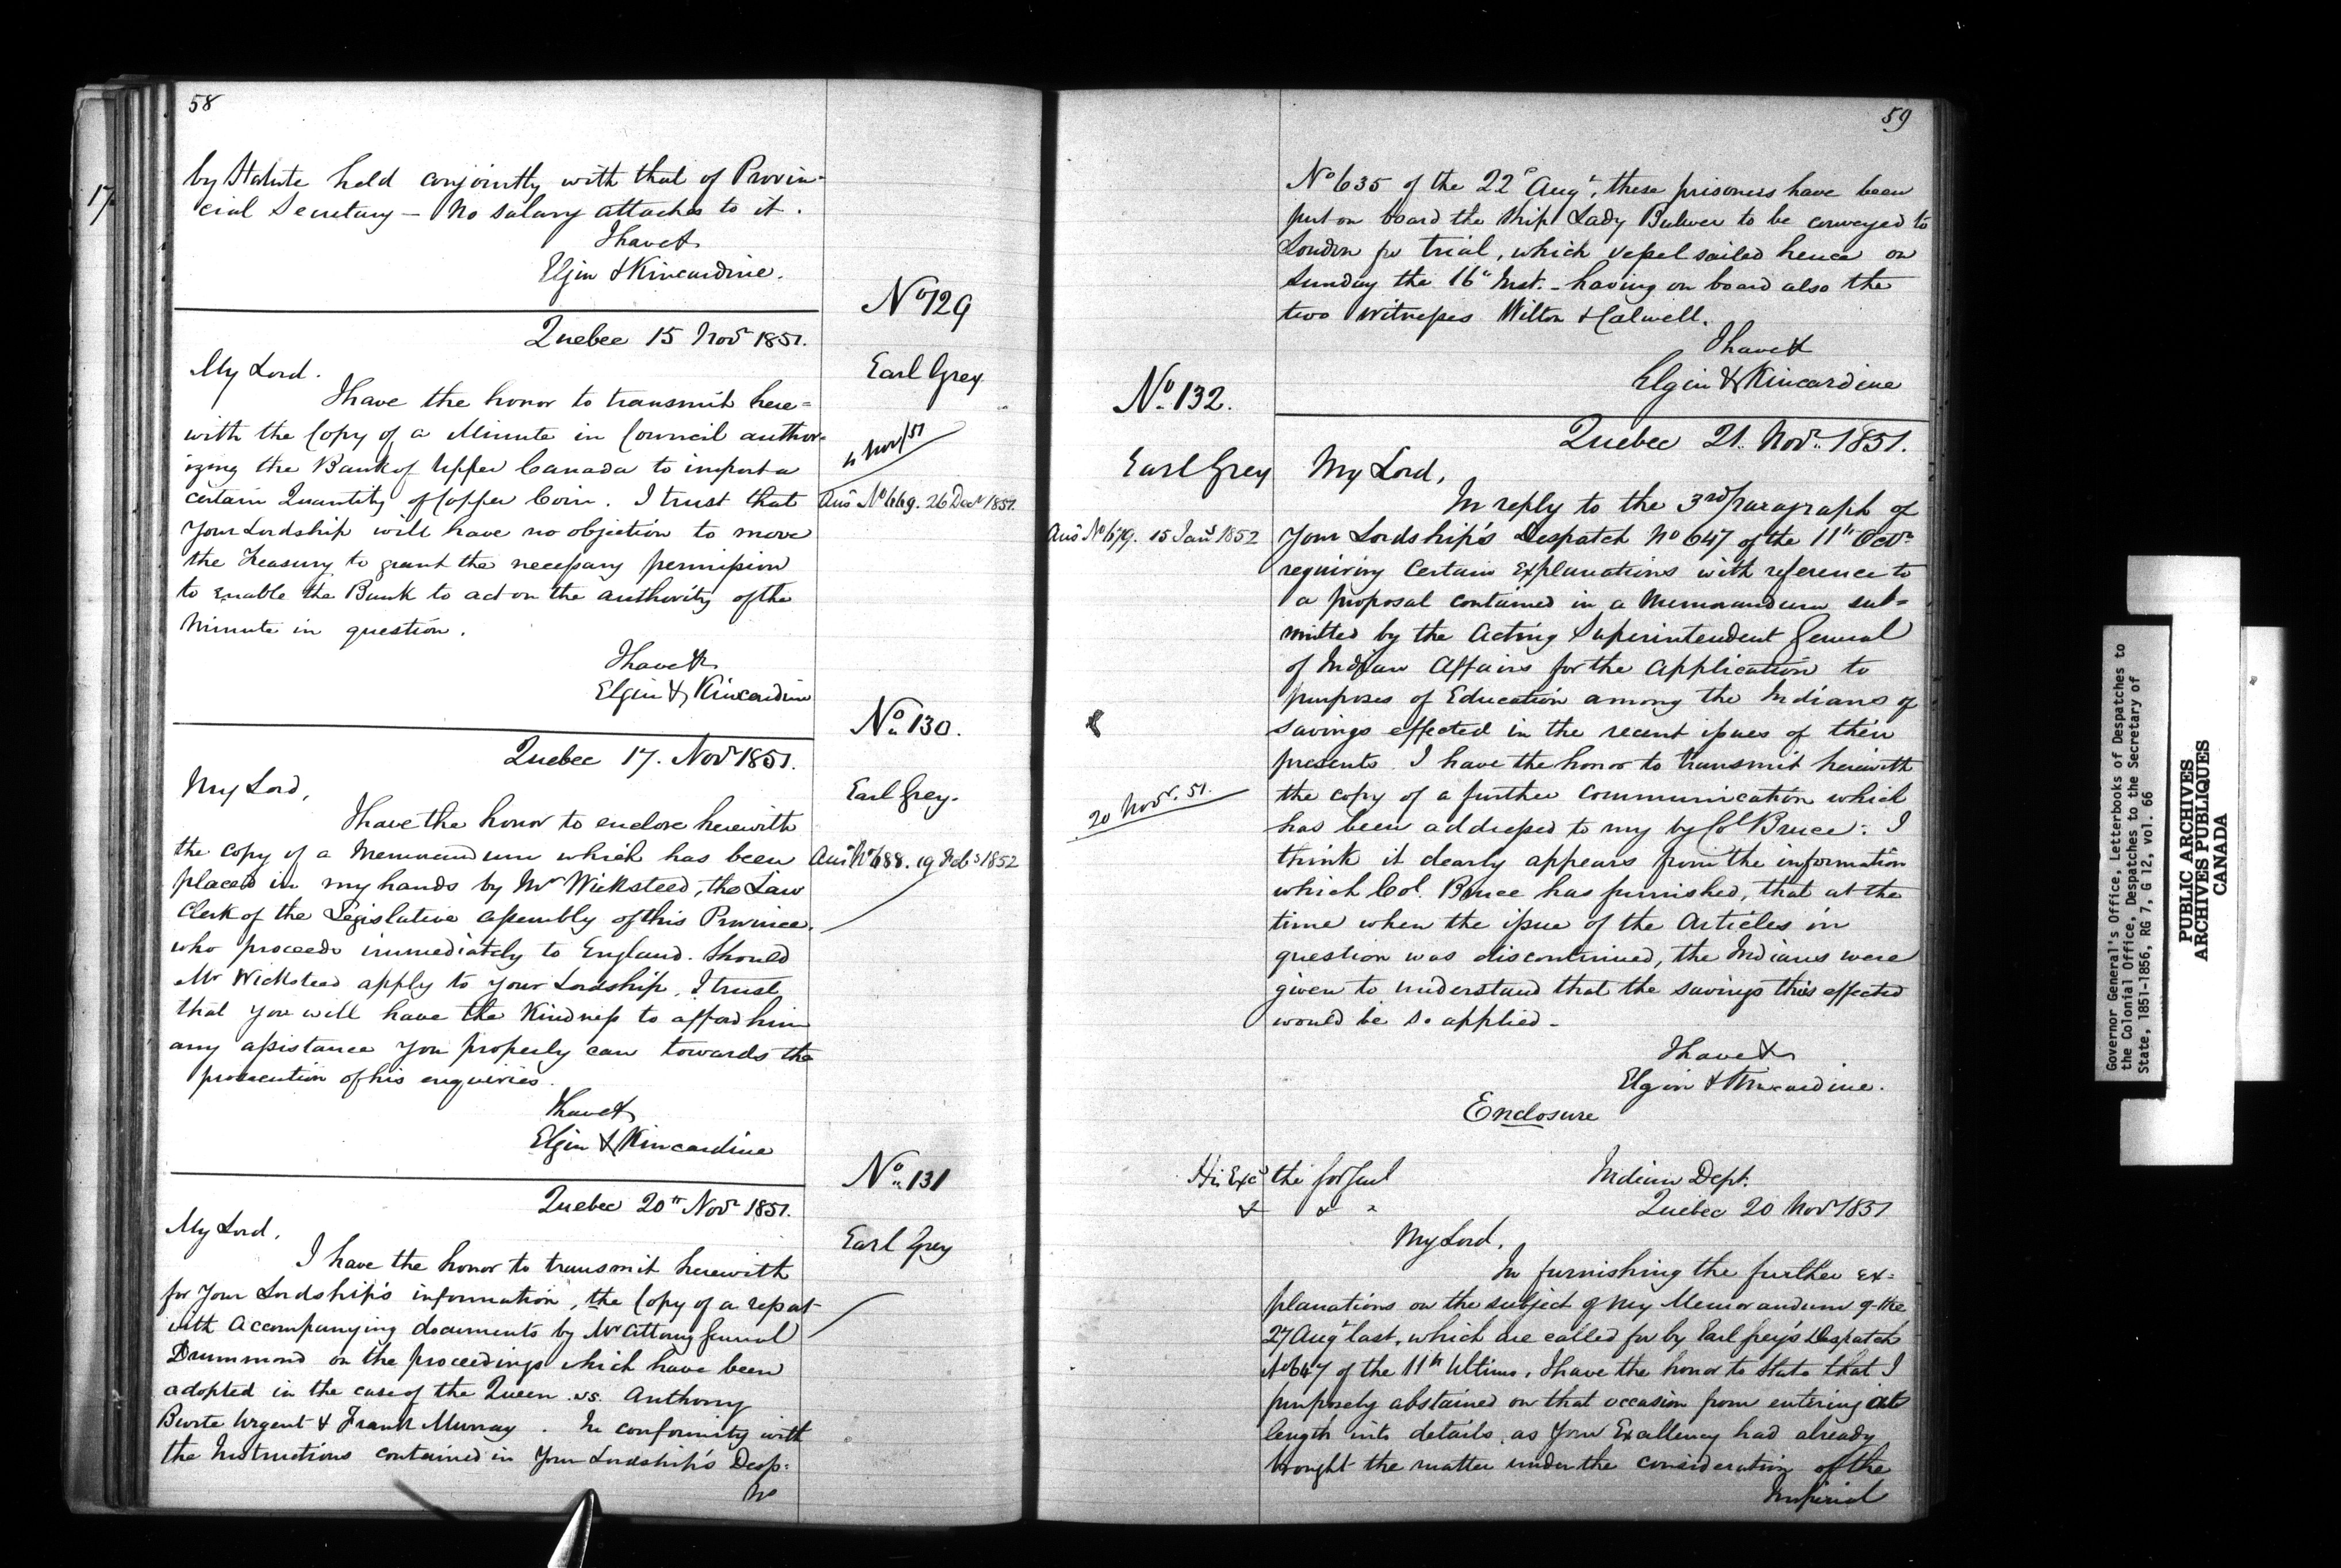 58
by Statute held conjointly with that of Provin-
cial Secretary — No salary attaches to it.
I have &
Elgin & Kincardine.
No 129
Quebec 15 Novr 1851.
Earl Grey
My Lord.
I have the honor to transmit here=
with the Copy of a Minute in Council author=
11 Nov/51
izing the Bank of Upper Canada to import a
certain Quantity of Copper Coin. I trust that
Ansd No 669. 26 Decr 1851.
Your Lordship will have no objection to move
the Treasury to grant the necessary permission
to enable the Bank to act on the authority of the
Minute in question.
I have &
Elgin & Kincardine
No 130.
Quebec 17. Novr 1851.
Earl Grey.
My Lord,
I have the honor to enclose herewith
the copy of a Memorandum which has been
Ansd No 688. 19 Feby 1852
placed in my hands by Mr Wicksteed, the Law
Clerk of the Legislative Assembly of this Province.
who proceeds immediately to England. Should
Mr Wicksteed apply to Your Lordship, I trust
that you will have the Kindness to afford him
any assistance you properly can towards the
prosecution of his enquiries.
I have &
Elgin & Kincardine
No 131
Quebec 20th Novr 1851.
Earl Grey
My Lord,
I have the honor to transmit herewith
for Your Lordship's information, the Copy of a report
with accompanying documents by Mr Attorney General
Drummond on the proceedings which have been
adopted in the case of the Queen vs. Anthony
& Frank Murray. In conformity with
the Instructions contained in Your Lordship's Desp:
No
59
No 635 of the 22d Augt, these prisoners have been
put on board the Ship Lady Bulwer to be conveyed to
London for trial, which vessel sailed hence on
Sunday the 16th Inst. - having on board also the
two Witnesses Wilton & Calwell.
I have &
Elgin & Kincardine
No. 132.
Quebec 21. Novr. 1851.
Earl Grey
My Lord,
In reply to the 3rd paragraph of
Ansd No 679. 15 Jany 1852
Your Lordship's Despatch No 647 of the 11th Octr
requiring Certain Explanations with reference to
a proposal contained in a Memorandum sub=
mitted by the Acting Superintendent General
of Indian Affairs for the Application to
purposes of Education among the Indians of
savings effected in the recent issues of their
presents. I have the honor to transmit herewith
20 Novr. 51.
the copy of a further communication which
has been addressed to my by Col Bruce: I
think it clearly appears from the information
which Col. Bruce has furnished, that at the
time when the issue of the Articles in
question was discontinued, the Indians were
given to understand that the savings thus effected
would be so applied -
I have &
Elgin & Kincardine.
Enclosure
His Excy the Gov Genl
& & "
Indian Dept.
Quebec 20 Novr 1851
My Lord,
In furnishing the further ex=
planations on the subject of my Memorandum of the
27 Augt last, which are called for by Earl Grey's Despatch
No 647 of the 11th Ultimo, I have the honor to state that I
purposely abstained on that occasion from entering at
length into details, as Your Excellency had already
brought the matter under the consideration of the
Imperial
17
Governor General's Office, Letterbooks of Despatches to
the Colonial Office, Despatches to the Secretary of
State, 1851-1856, RG 7, G 12, vol. 66
PUBLIC ARCHIVES
ARCHIVES PUBLIQUES
CANADA